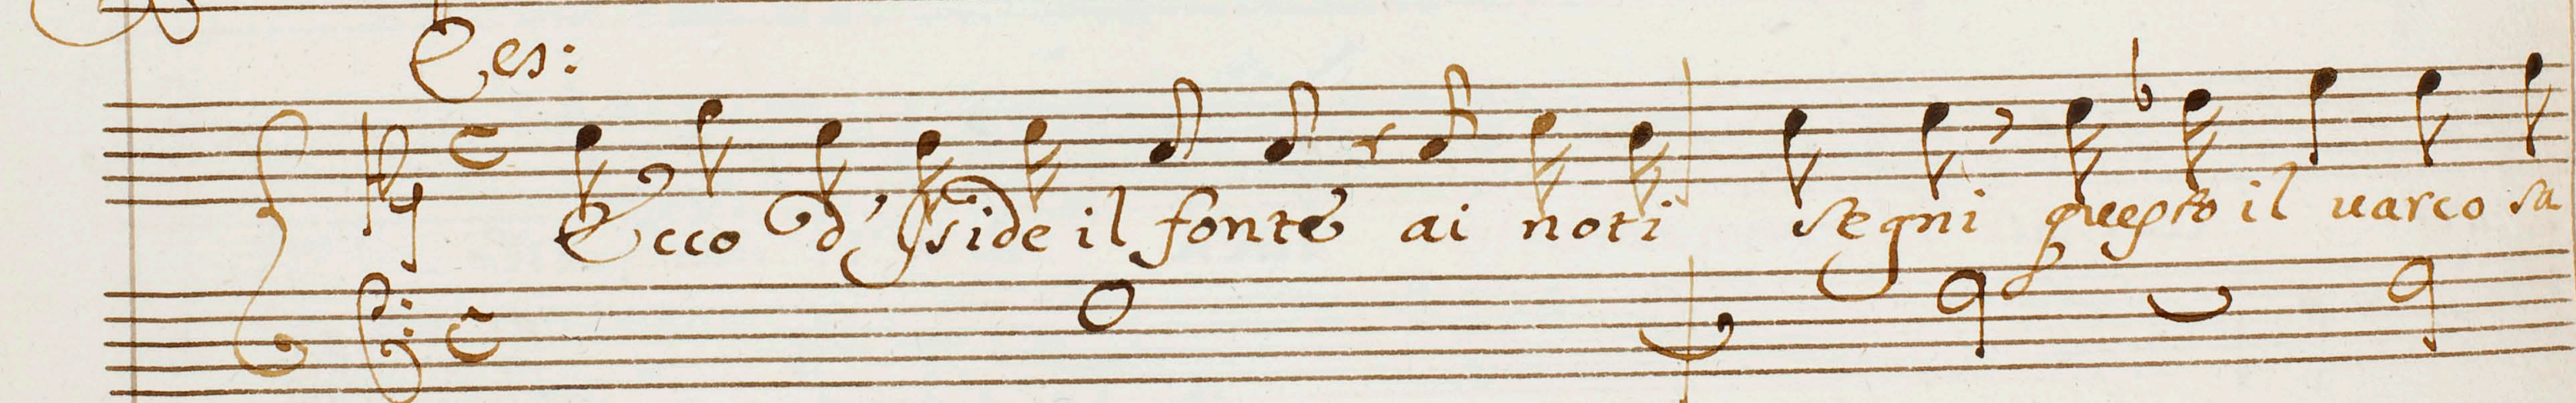 Ces:
Ecco d'Iside il fonte ai noti segni questo il uarco sa